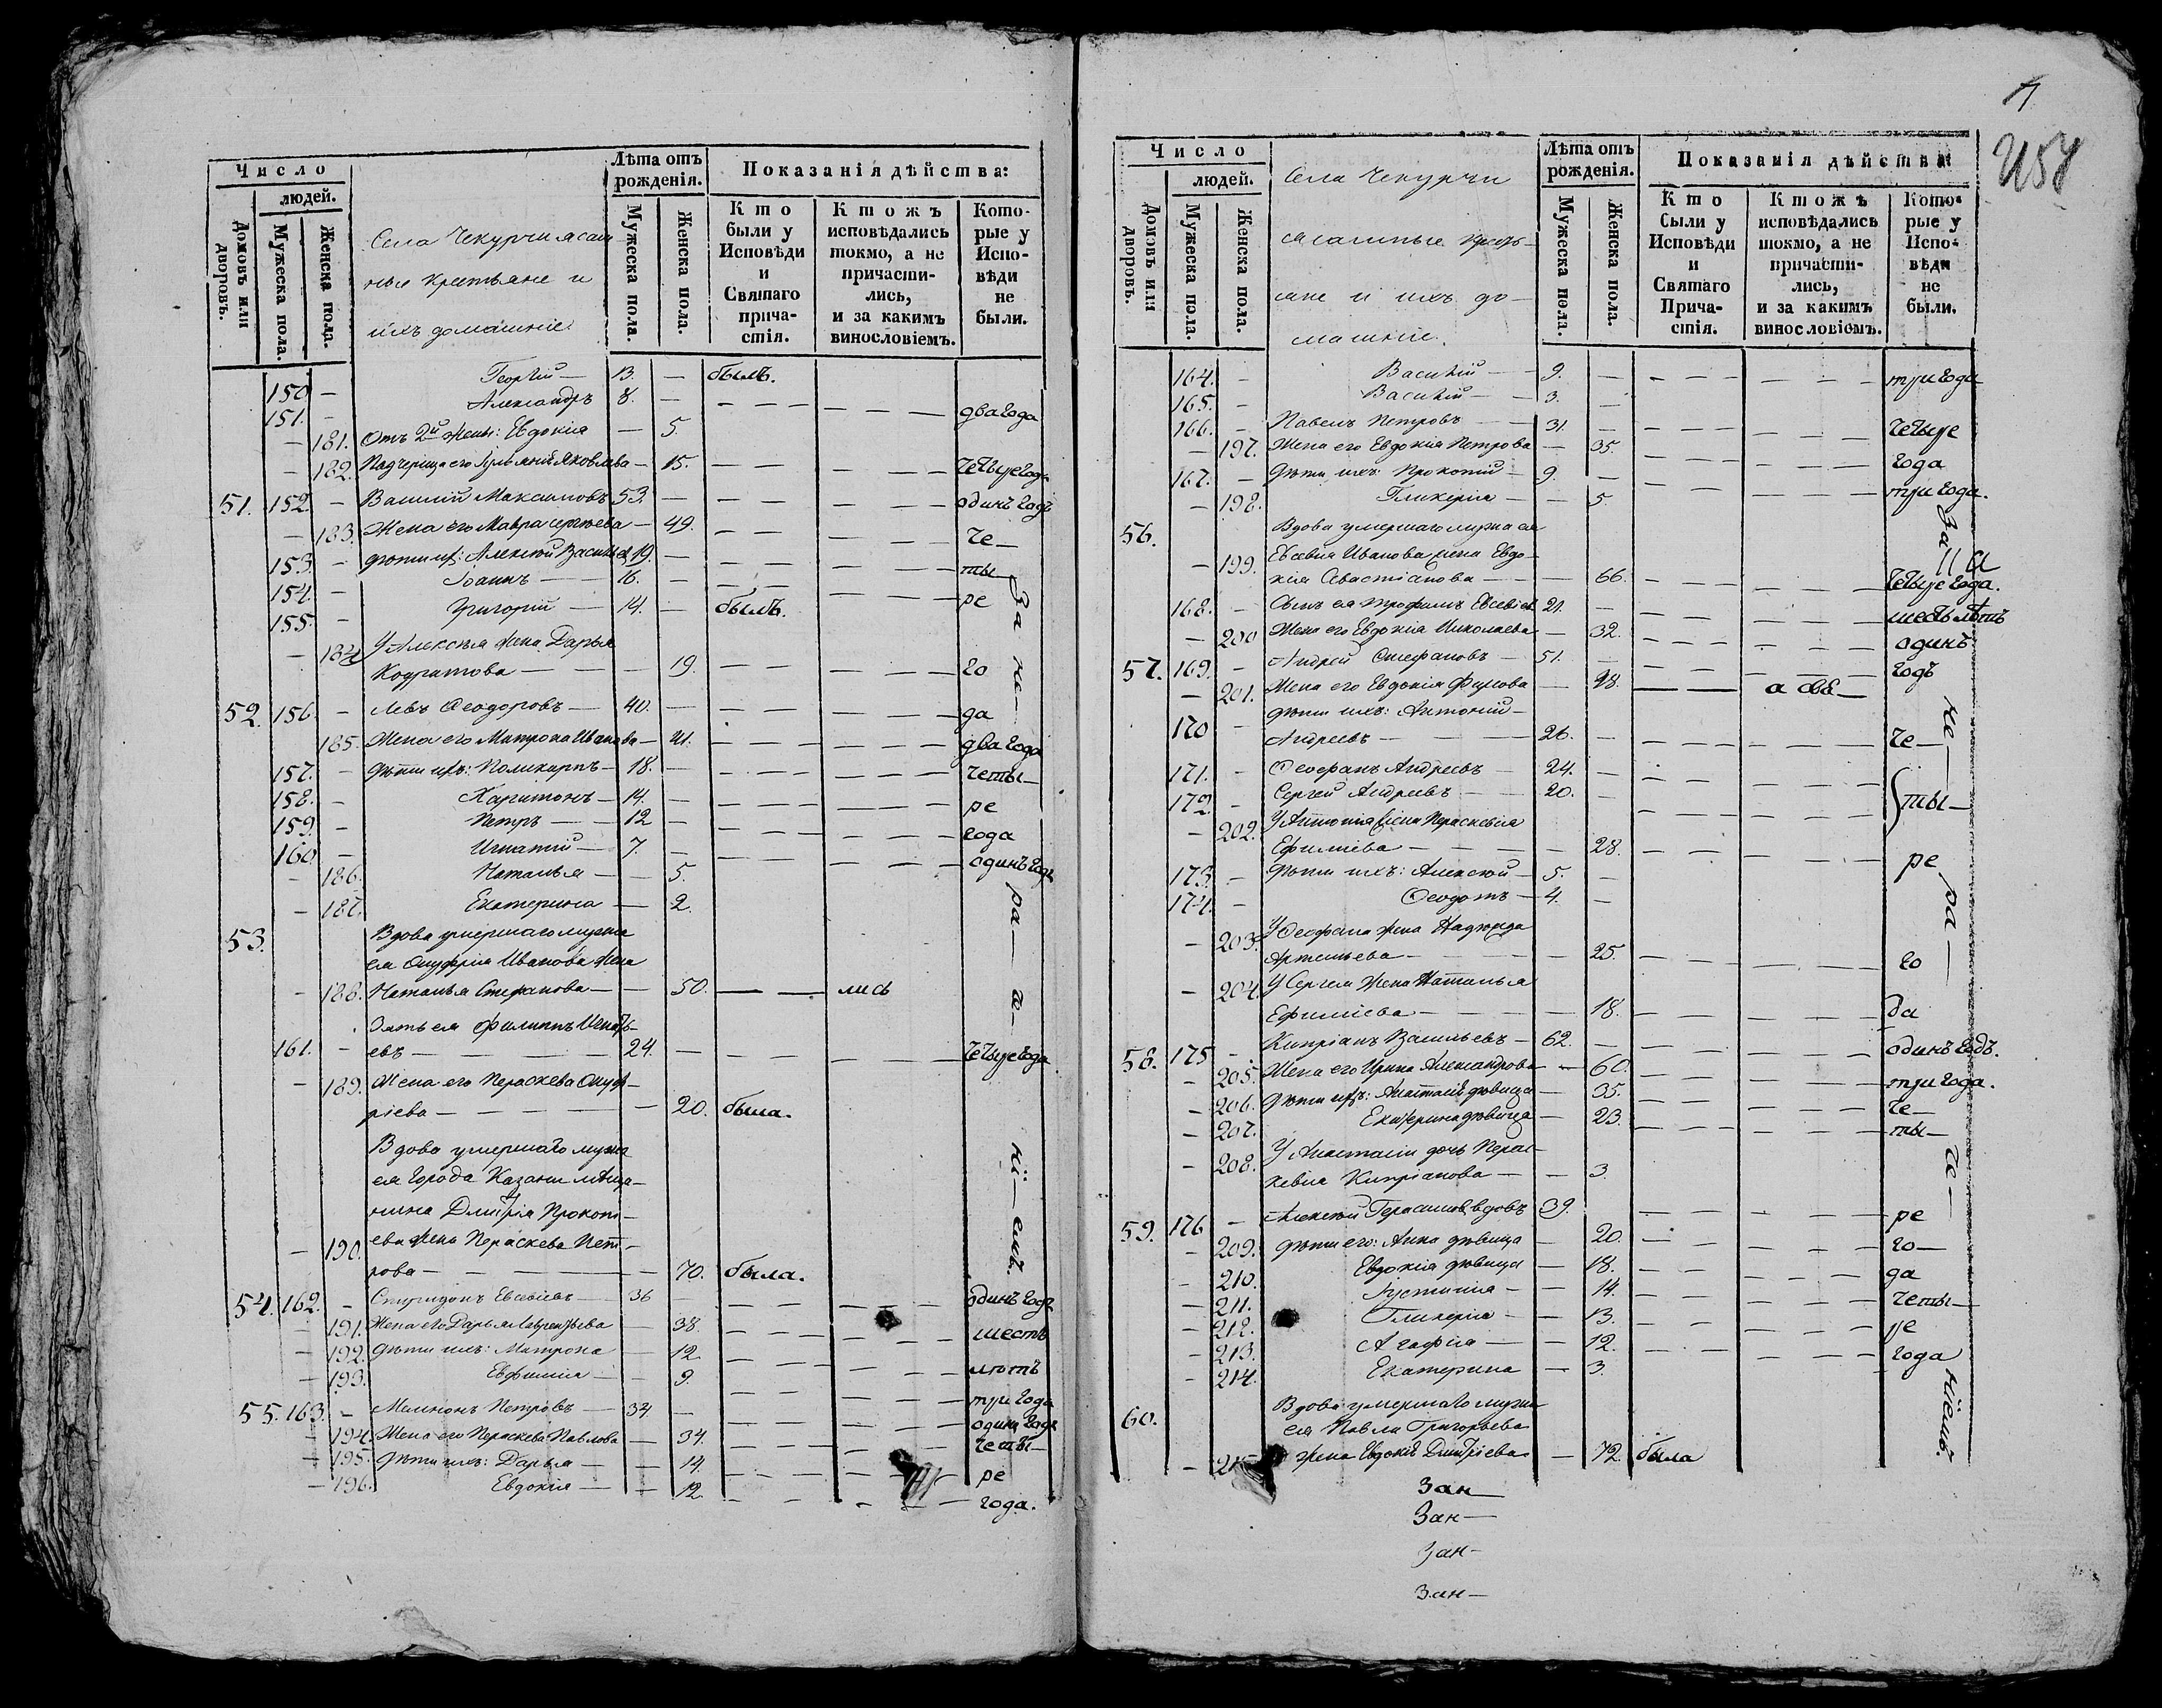 Число
людей.
Домовъ или дворовъ.
Мужеска пола.
Женска пола.
Села Чекурчи ясаш
ные крестьяне и
ихъ домашніе.
Лѣта отъ
рожденія.
Мужеска пола.
Женска пола.
Показанія дѣйства:
Кто
были у
Исповѣди
и
Святаго
прича-
стія.
Ктожъ
исповѣдались
токмо, а не
причасти-
лись,
и за какимъ
винословіемъ.
Кото-
рые у
Испо-
вѣди
не
были.
150 — Георгій — 13. — былъ.
151. — Александръ 8. — два года
— 181. Отъ 2й жены: Евдокія — 5.
— 182. Падчерица его Яковлева — 15. — четыре года
51. 152. — Василій Максимовъ 53. — одинъ годъ
— 183. Жена его Мавра Сергѣева — 49. че—
153. — дѣти ихъ: Алексѣй Васильев 19. — ты—
154. — Іоаннъ — 16. — ре
155. — Григорій — 14. — былъ.
— 184 У Алексѣя жена Дарья
Кодратова — 19. го
52. 156. — Левъ Ѳеодоровъ — 40. — да
185. Жена его Матрона Иванова — 41. два года
157. — дѣти ихъ: Поликарпъ — 18. — четы—
158. — Харитонъ — 14. — ре
159. — Петръ — 12 — года
160 — Игнатій — 7. — одинъ годъ
— 186. Наталья — 5.
— 187. Екатерина — 2.
53. Вдова умершаго мужа
ея Онуфрія Иванова жена
— 188. Наталья Стефанова — 50. — лись
Зять ея Филиппъ Игнать-
161. — евъ — 24. — четыре года
— 189. Жена его Параскева Онуф-
ріева — 20. была.
Вдова умершаго мужа
ея города Казани мѣща-
нина Дмитрія Прокопі-
— 190. ева жена Параскева Пет-
рова — 70. была.
54. 162. — Спиридонъ Евсевіевъ — 36 — одинъ годъ
— 191. Жена его Дарья Лаврентьева — 38. шесть
— 192. дѣти ихъ: Матрона — 12. лѣтъ
— 193. Евфимія — 9. три года
55. 163. — Мемнонъ Петровъ — 34 — одинъ годъ
— 194. Жена его Параскева Павлова — 34. четы—
— 195. дѣти ихъ: Дарья — 14. ре
— 196. Евдокія — 12. года.
За не— ра— дѣ— ні— емъ.
Число
людей.
Домовъ или дворовъ.
Мужеска пола.
Женска пола.
Села Чекурчи
ясашные кресть-
яне и ихъ до-
машніе.
Лѣта отъ
рожденія.
Мужеска пола.
Женска пола.
Показанія дѣйства:
Кто
были у
Исповѣди
и
Святаго
Прича-
стія.
Ктожъ
исповѣдались
токмо, а не
причасти-
лись,
и за какимъ
винословіемъ.
Кото-
рые у
Испо-
вѣди
не
были.
164. — Василій — 9. — три года
165. — Василій — 3. —
166. — Павелъ Петровъ — 31. — четыре
— 197. Жена его Евдокія Петрова — 35. года
167. — дѣти ихъ: Прокопій — 9. — три года.
— 198. Гликерія — 5.
56. Вдова умершаго мужа ея
— 199. Евсевія Иванова жена Евдо-
кія Севастіанова — 66. четыре года.
168. — Сынъ ея Трофимъ Евсевіев 21. — шесть лѣтъ
— 200 Жена его Евдокія Николаева — 32. одинъ
57. 169. — Андрей Стефановъ — 51. — годъ
— 201. Жена его Евдокія — 48.
170 — дѣти ихъ: Антоній
Андреевъ — 26. — че—
171. — Ѳеофанъ Андреевъ — 24. —
172. — Сергей Андреевъ — 20. — ты—
— 202. У Антонія жена Параскевія
Ефиміева — 28. ре
173. — дѣти ихъ: Алексѣй — 5. —
174. — Ѳеодотъ — 4. —
— 203. У Ѳеофана жена Надежда
Артемьева — 25. го
— 204. У Сергея жена Наталья
Ефиміева — 18. да
58. 175 — Кипріанъ Васильевъ — 62. — одинъ годъ.
— 205. Жена его Ирина Александрова — 60. три года.
— 206. дѣти ихъ: дѣвица — 35. че—
— 207. Екатерина дѣвица — 23. ты—
— 208. У Анастасіи дочь Парас-
кевія Кипріанова — 3.
59. 176 — Алексѣй Герасимовъ вдовъ 39. ре
— 209. дѣти его: Анна дѣвица — 20. го—
— 210. Евдокія дѣвица — 18. да
— 211. Іустинія — 14. четы—
— 212. Гликерія — 13. ре
— 213. Агафія — 12. года
— 214. Екатерина — 3.
60. Вдова умершаго мужа
ея Павла Григорьева
— жена Евдокія Дмитріева — 72 была
За не— ра— де— ніемъ.
Зан—
Зан—
Зан—
Зан—